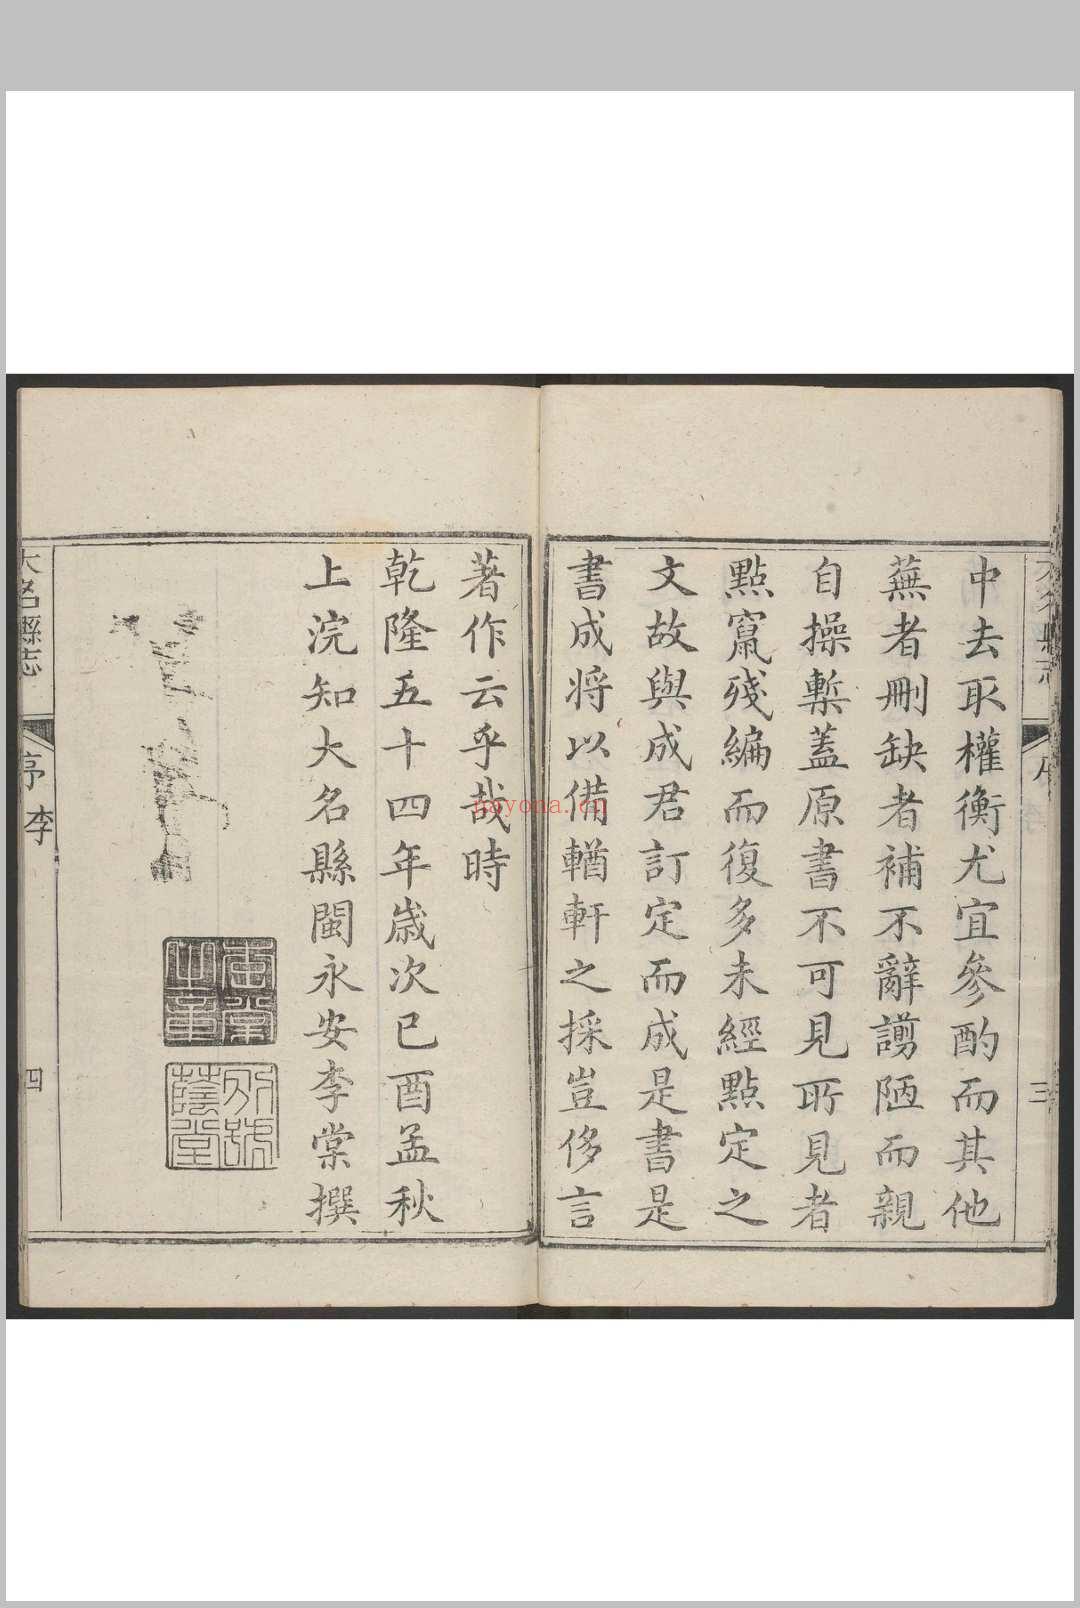 三
中去取權衡尤宜參酌而其他
蕪者刪缺者補不辭譾陋而親
自操槧蓋原書不可見所見者
點竄殘編而復多未經點定之
文故與成君訂定而成是書是
書成將以備輶軒之採豈侈言
著作云乎哉時
乾隆五十四年歲次己酉孟秋
上浣知大名縣閩永安李棠撰
別號蔭堂
大名縣志 序 李 四
nayona.cn